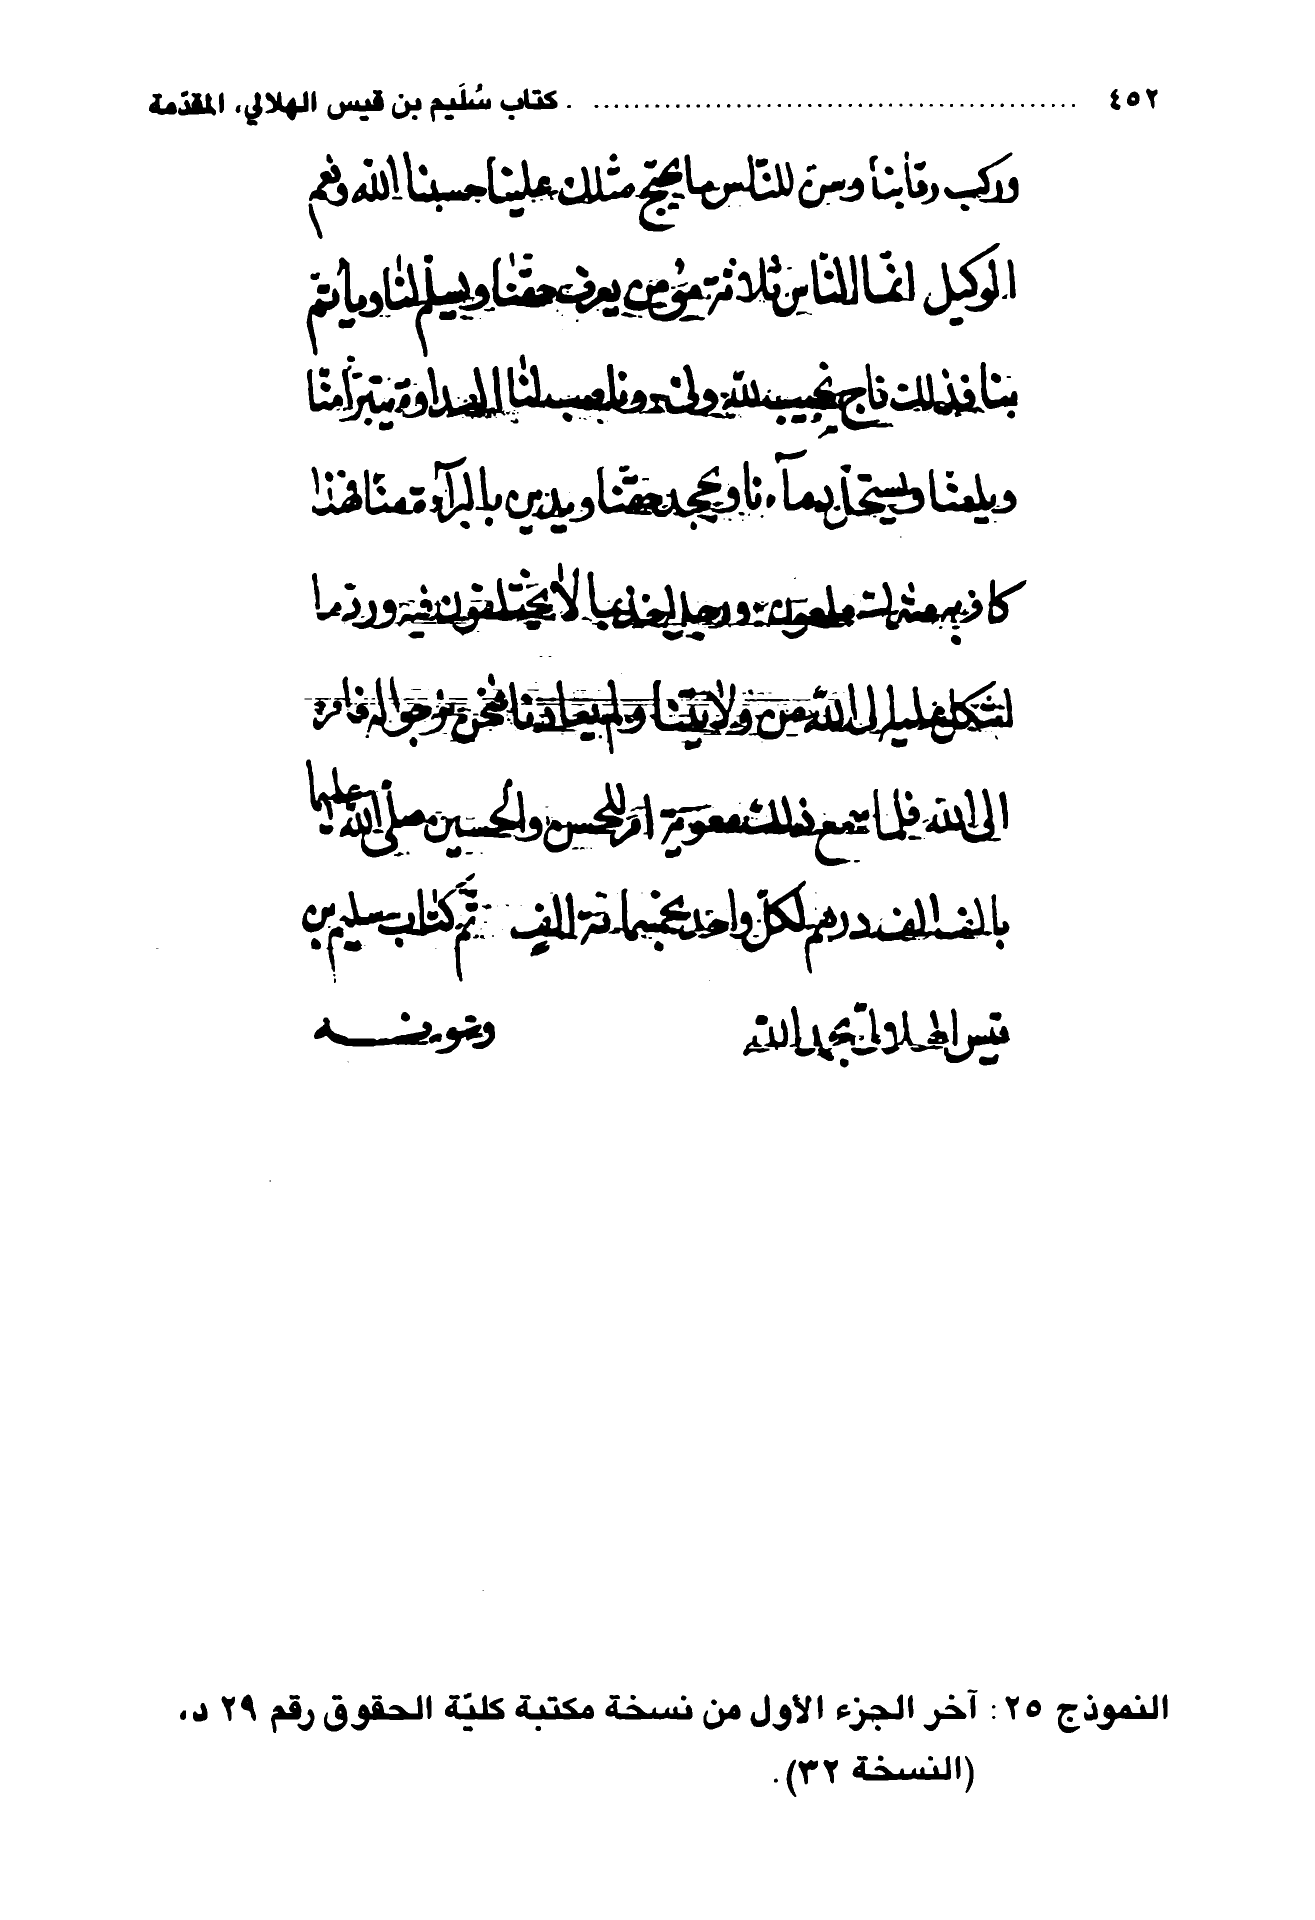 ٤٥٢ ........ كتاب سُلَيم بن قيس الهلالي، المقدّمة
وركب رقابنا وسن للنّاس ما يحتج مثلك علينا حسبنا الله ونعم
الوكيل انمّا النّاس ثلاثة مؤمن يعرف حقنا ويسلّم لنا ويأتم
بنا فذلك ناج نجيب لله ولي وناصب لنا العداوة يتبرأ منّا
ويلعنّا ويستحلّ دمآءنا ويجحد حقنا ويدين بالبرآءة منّا فهذا
كافر به مشرك ملعون ورجل اخذ بما لا يختلفون فيه وردّ ما
اشكل عليه الى الله من ولايتنا ولم يعادنا فنحن نرجوا له فامره
الى الله فلما سمع ذلك معوية امر للحسن والحسين صلى الله عليهما
بالف الف درهم لكلّ واحد بخمسمائة الف تمّ كتاب سليم بن
قيس الهلالي بحمد الله وعونه
النموذج ٢٥: آخر الجزء الأول من نسخة مكتبة كليّة الحقوق رقم ٢٩ د،
(النسخة ٣٢).